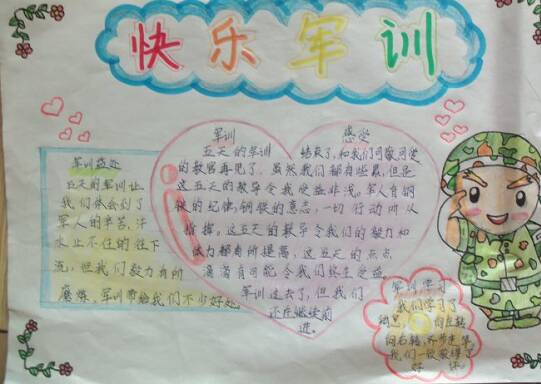 快乐军训
军训益处
五天的军训让
我们体会到了
军人的辛苦,汗
水止不住的往下
流,但我们毅力有所
磨炼,军训带给我们不少好处
军训 感受
五天的军训 结束了,和我们可敬可爱
的教官再见了,虽然我们都有些累,但是
这五天的教导令我受益非浅。军人有钢
铁的纪律,钢铁的意志,一切行动听从
指挥。这五天的教导令我们的毅力和
体力都有所提高,这五天的点点
滴滴有可能令我们终生受益
军训过去了,但我们
还在继续前
进。
军训学习
我们学习了
向左转
向右转,齐步走等
我们一致
好 坏